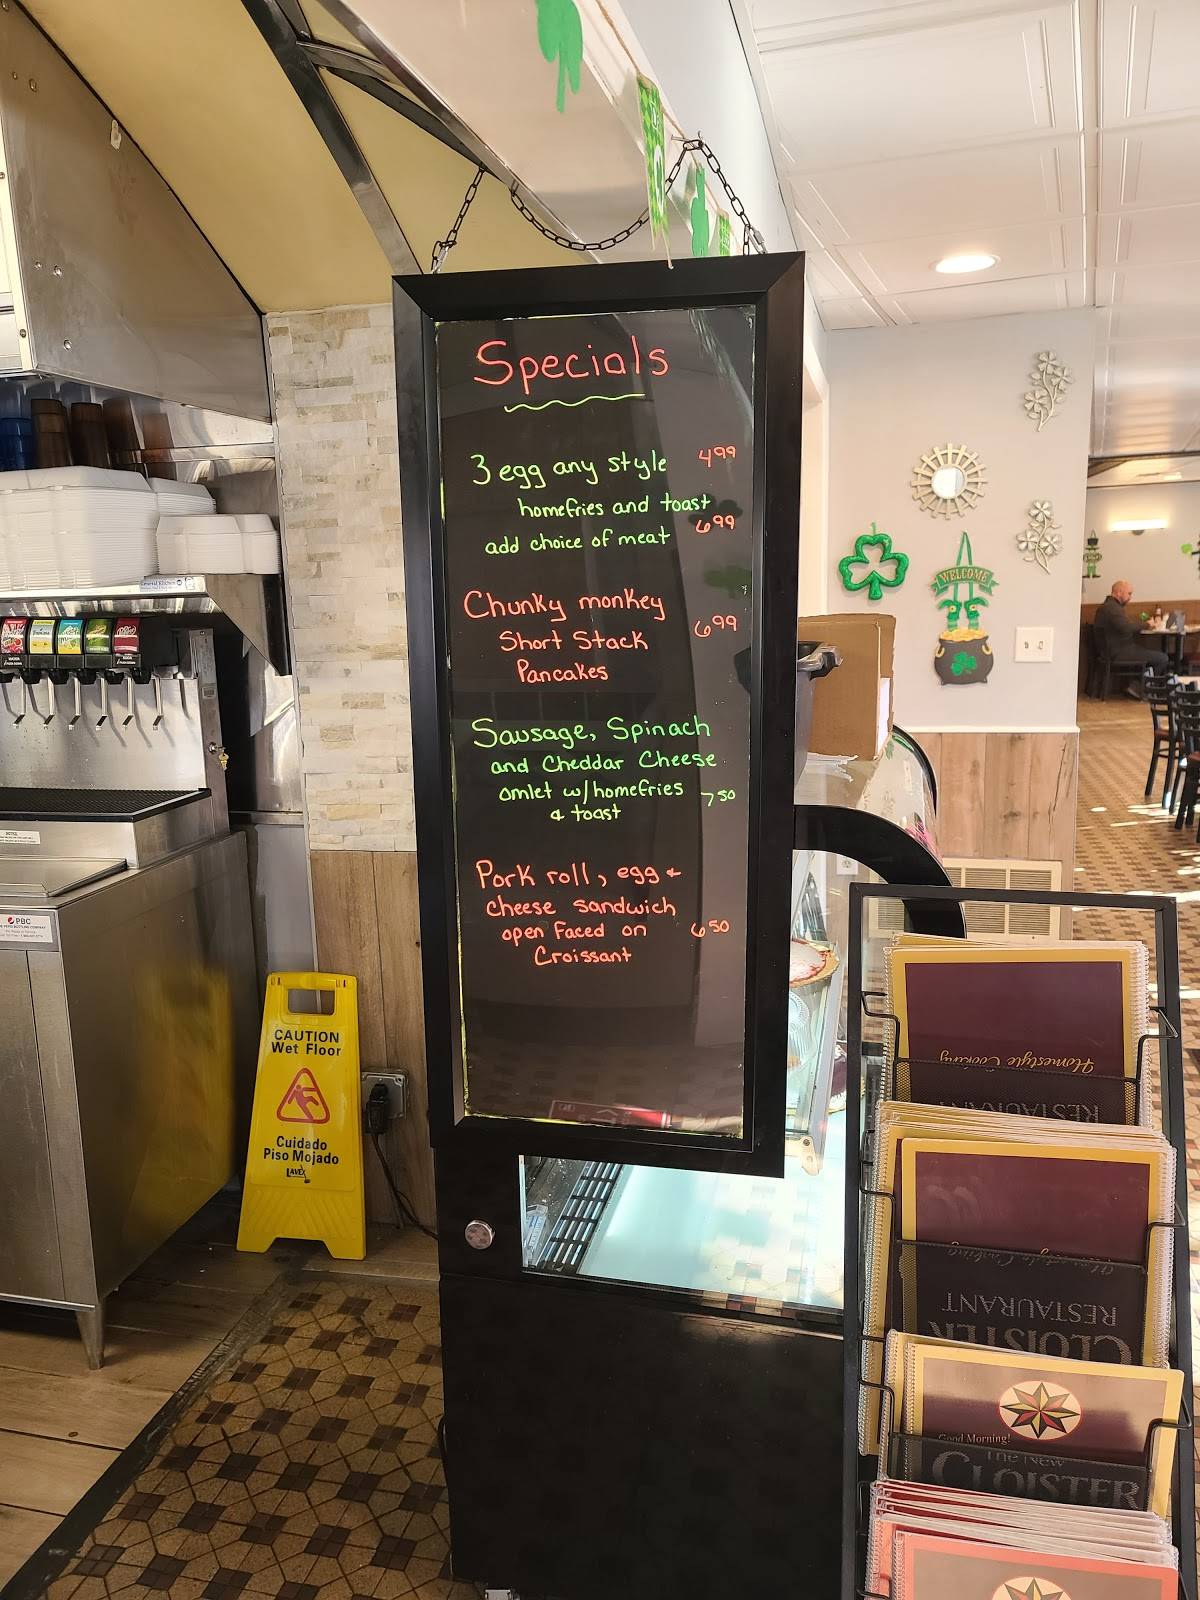 Specials
3 egg any style 4.99
homefries and toast
add choice of meat 6.99
Chunky monkey
Short Stack 6.99
Pancakes
Sausage, Spinach
and Cheddar Cheese
omlet w/homefries 7.50
& toast
Pork roll, egg +
cheese sandwich
open faced on 6.50
Croissant
WELCOME
CAUTION
Wet Floor
Cuidado
Piso Mojado
LAVEX
PBC
NOTICE
Homestyle Cooking
RESTAURANT
Homestyle Cooking
RESTAURANT
CLOISTER
Good Morning!
The New
CLOISTER